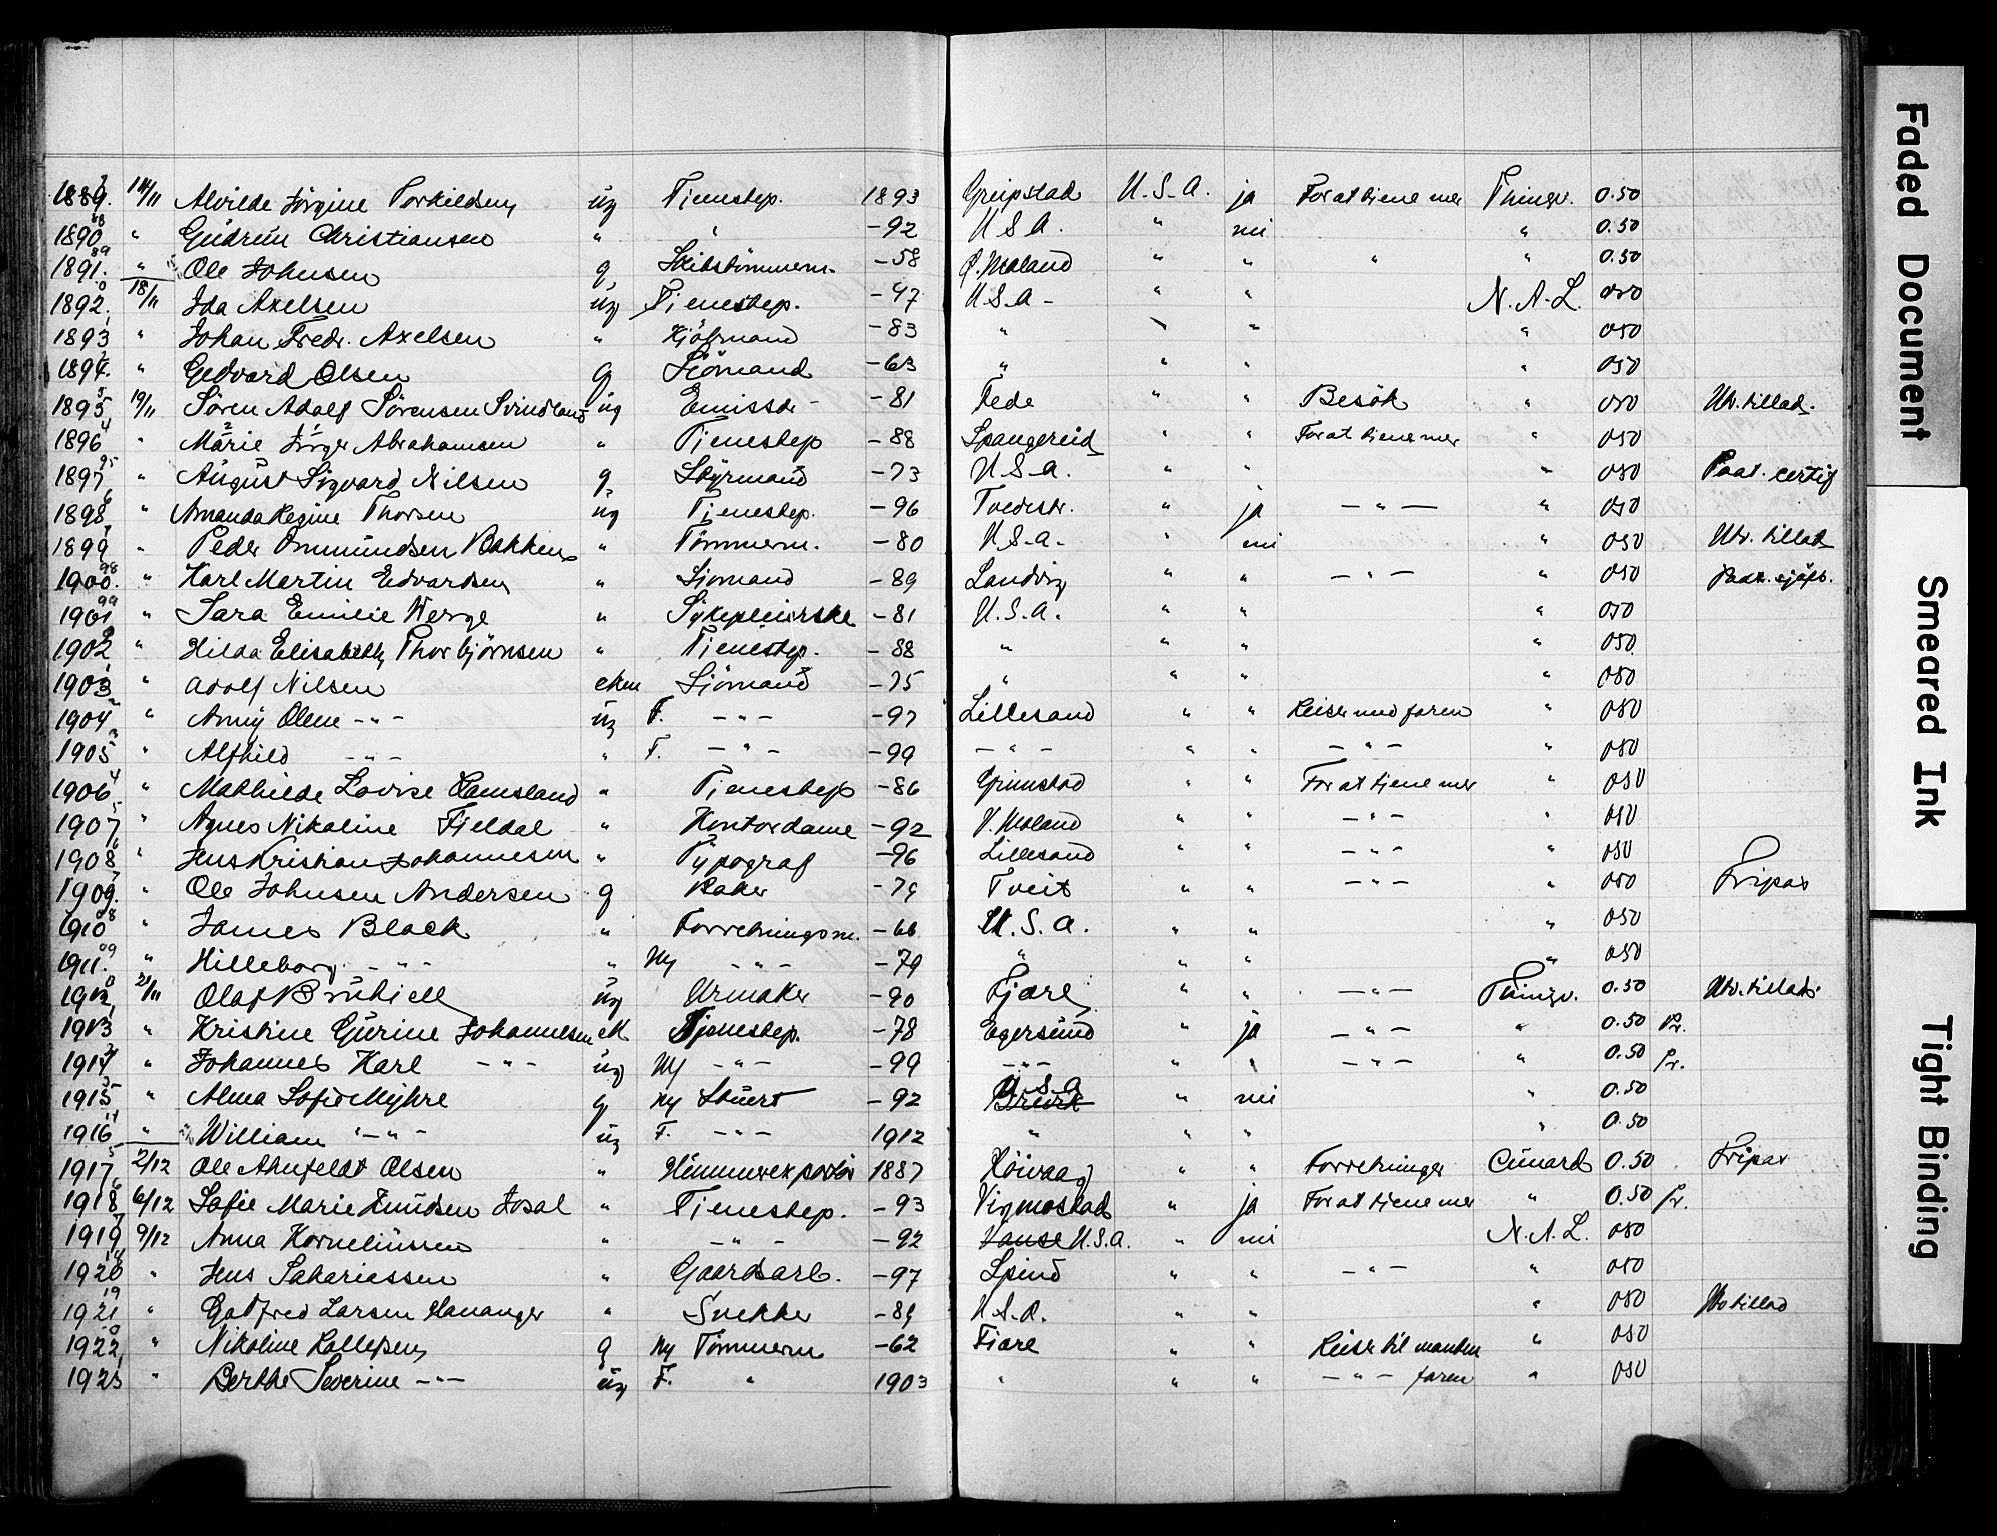 1889. 14/11 Alvilde Jörgine Torkildsen ug Tjenestep. 1893 Greipstad U.S.A. ja For at tjene mer Thingv. 0.50
1890 " Gudrun Christiansen " " -92 U S A. " nei " 0.50
1891. " Ole Johnsen g. Skibstömmerm. -58 Ø. Moland " " " " 0.50
1892. 18/11 Ida Axelsen ug Tjenestep. -47 U.S.A- " " N.A.L. 050
1893 " Johan Fredr. Axelsen " Kjöbmand -83 " " " " 050
1894. " Gedvard Olsen g Sjömand -63 " " " " 050
1895 19/11 Sören Adolf Sörensen Svindland ug Emissær -81 Fede " " Besök " 050 Utv. tillad.
1896 " Marie Jörg. Abrahamsen " Tjenestep -88 Spangereid " " For at tjene mer " 050
1897 " August Sigvard Nilsen g. Styrmand -73 U.S.a. " " " 050 Paat. certif
1898 " Amanda Regine Thorsen ug Tjenestep. -96 Tvedestr. " ja - " - " 050
1899 " Peder Ommundsen Bakken " Tömmerm. -80 U.S.a. " nei " 050 Utv. tillad
1900. " Karl Martin Edvardsen " Sjömand -89 Landvig " " - " - " 050 Paat. sjöfb.
1901 " Sara Emilie Werge " Sykepleierske -81 U.S.a. " " " 050
1902 " Hilda Elisabeth Thorbjørnsen " Tjenestep. -88 " " " 050
1903 " Adolf Nilsen ekm Sjömand -75 " " " " 050
1904 " Anny Olene - " - ug F. - " - -97 Lillesand " " Reiser med faren " 050
1905 " Alfhild - " - " F. - " - -99 - " - " " - " - " 050
1906 " Mathilde Lovise Ramsland " Tjenestep -86 Grimstad " " For at tjene mer " 050
1907 " Agnes Nikoline Fjeldal " Kontordame -92 V. Moland " " - " - " 050
1908 " Jens Kristian Johannesen " Typograf -96 Lillesand " " - " - " 050
1909. " Ole Johnsen Andersen g Baker -79 Tveit " " - " - " 050 Fripas
1910 " James Black " Forretningsm. -66 U.S.a. " " " 050
1911. " Hilleborg - " - " Hj - " - -79 " " " " 050
1912 21/11 Olaf Brubjell ug Urmaker -90 Fjære " " - " - Thingv. 0.50 Utv. tillad.
1913 " Kristine Gurine Johannesen ek Tjenestep. -78 Egersund " ja - " - " 0.50 Pr.
1914 " Johannes Karl - " - ug Hj - " - -99 - " - " " - " - " 0.50 Pr.
1915 " Alma Sofie Myhre g Hj Stuert -92 U.S.a " nei " 0.50
1916 " William " - " - ug F. - " - 1912 " " " " 0.50
1917 2/12 Ole Ahnfeldt Olsen " Hummerexportör 1887 Höivaag " " Forretninger Cunard 0.50 Fripas
1918 6/12 Sofie Marie Knudsen Josal " Tjenestep. -93 Vigmostad " ja For at tjene mer " 0.50 Pr.
1919 9/12 Anna Korneliussen " - " - -92 Vanse U.S.a. " nei N.A.L. 050
1920 " Jens Sakariassen " Gaardsarb. -97 Spind " " - " - " 050
1921 " Gotfred Larsen Hananger " Snekker -89 U.S.A. " " " 050 Utv tillad
1922 " Nikoline Kallepsen g Hj Tömmerm -62 Fjære " " Reiser til manden " 050
1923 " Berthe Severine - " - ug F. " 1903 " " " - " - faren " 050
Faded Document
Smeared Ink
Tight Binding